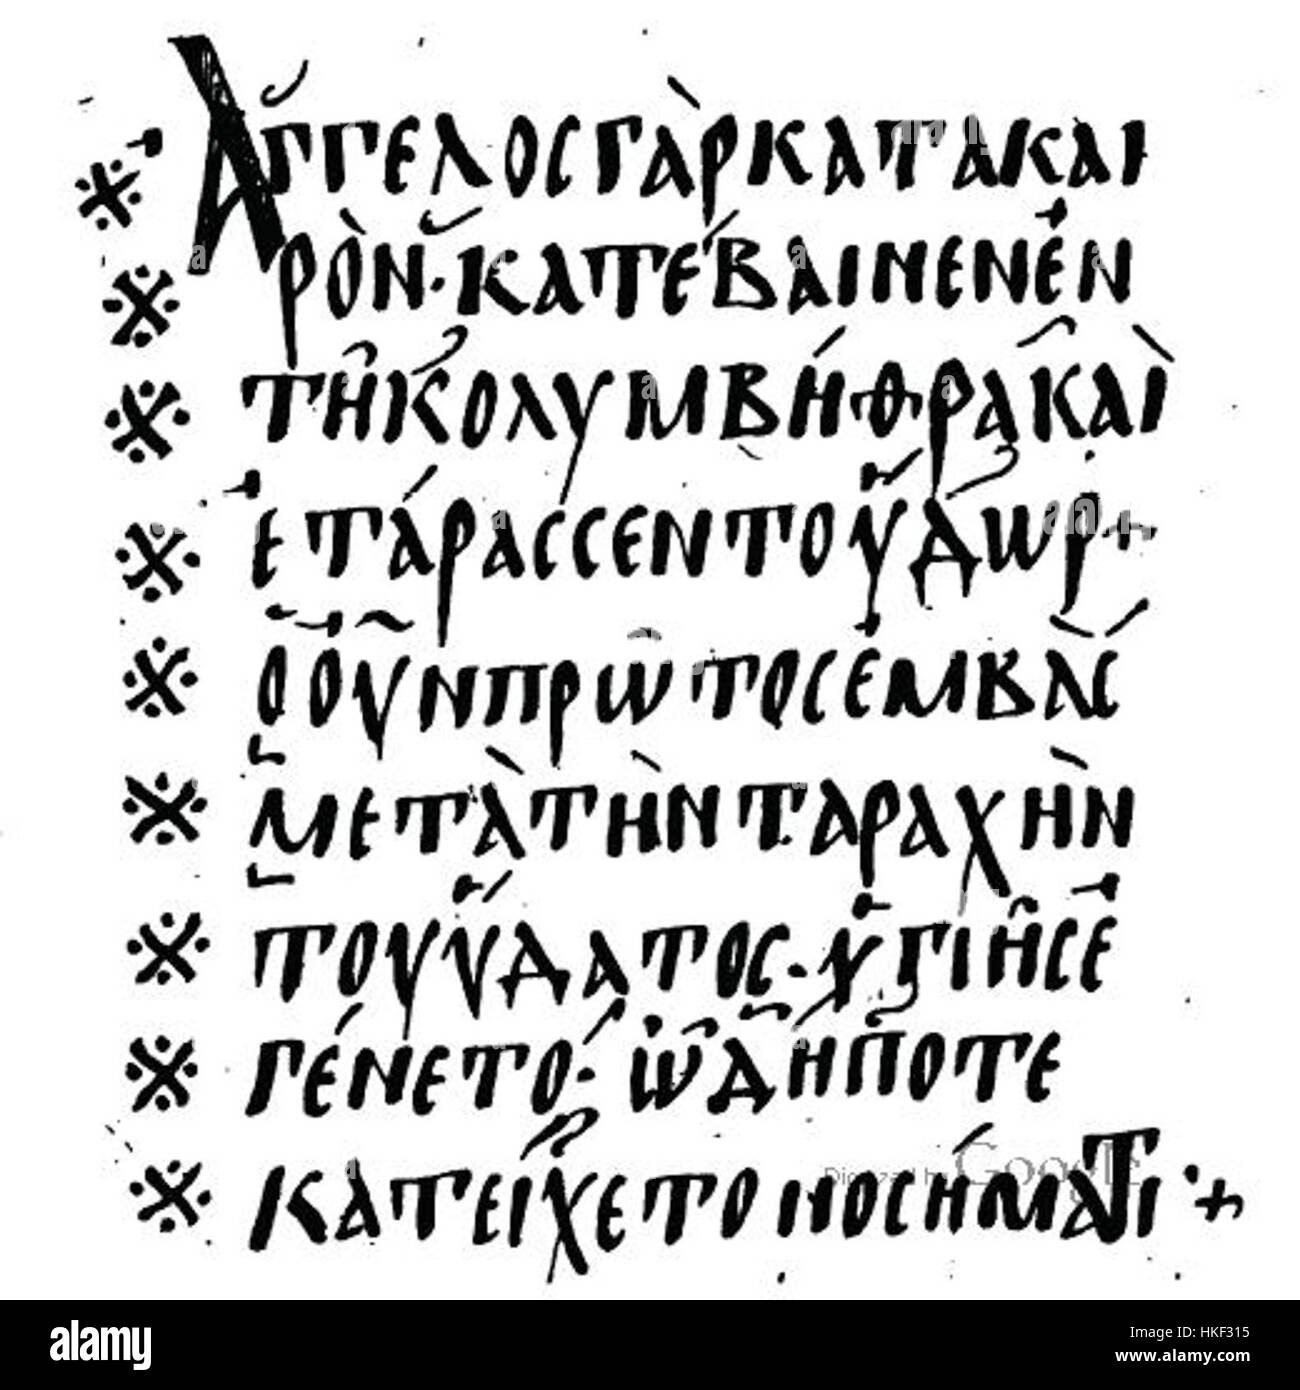 ἄγγελος γὰρ κατα και
ρὸν· κατέβαινεν ἐν
τῇ κολυμβήθρᾳ καὶ
ἐτάρασσεν τὸ ὕδωρ +
ὁ οὖν πρῶτος ἐμβὰς
μετὰ τὴν ταραχὴν
του ὕδατος· ὑγιὴς ἐ
γένετο· ᾧ δήποτε
κατείχετο νοσήματι +
Digitized by Google
alamy
Image ID: HKF315
www.alamy.com